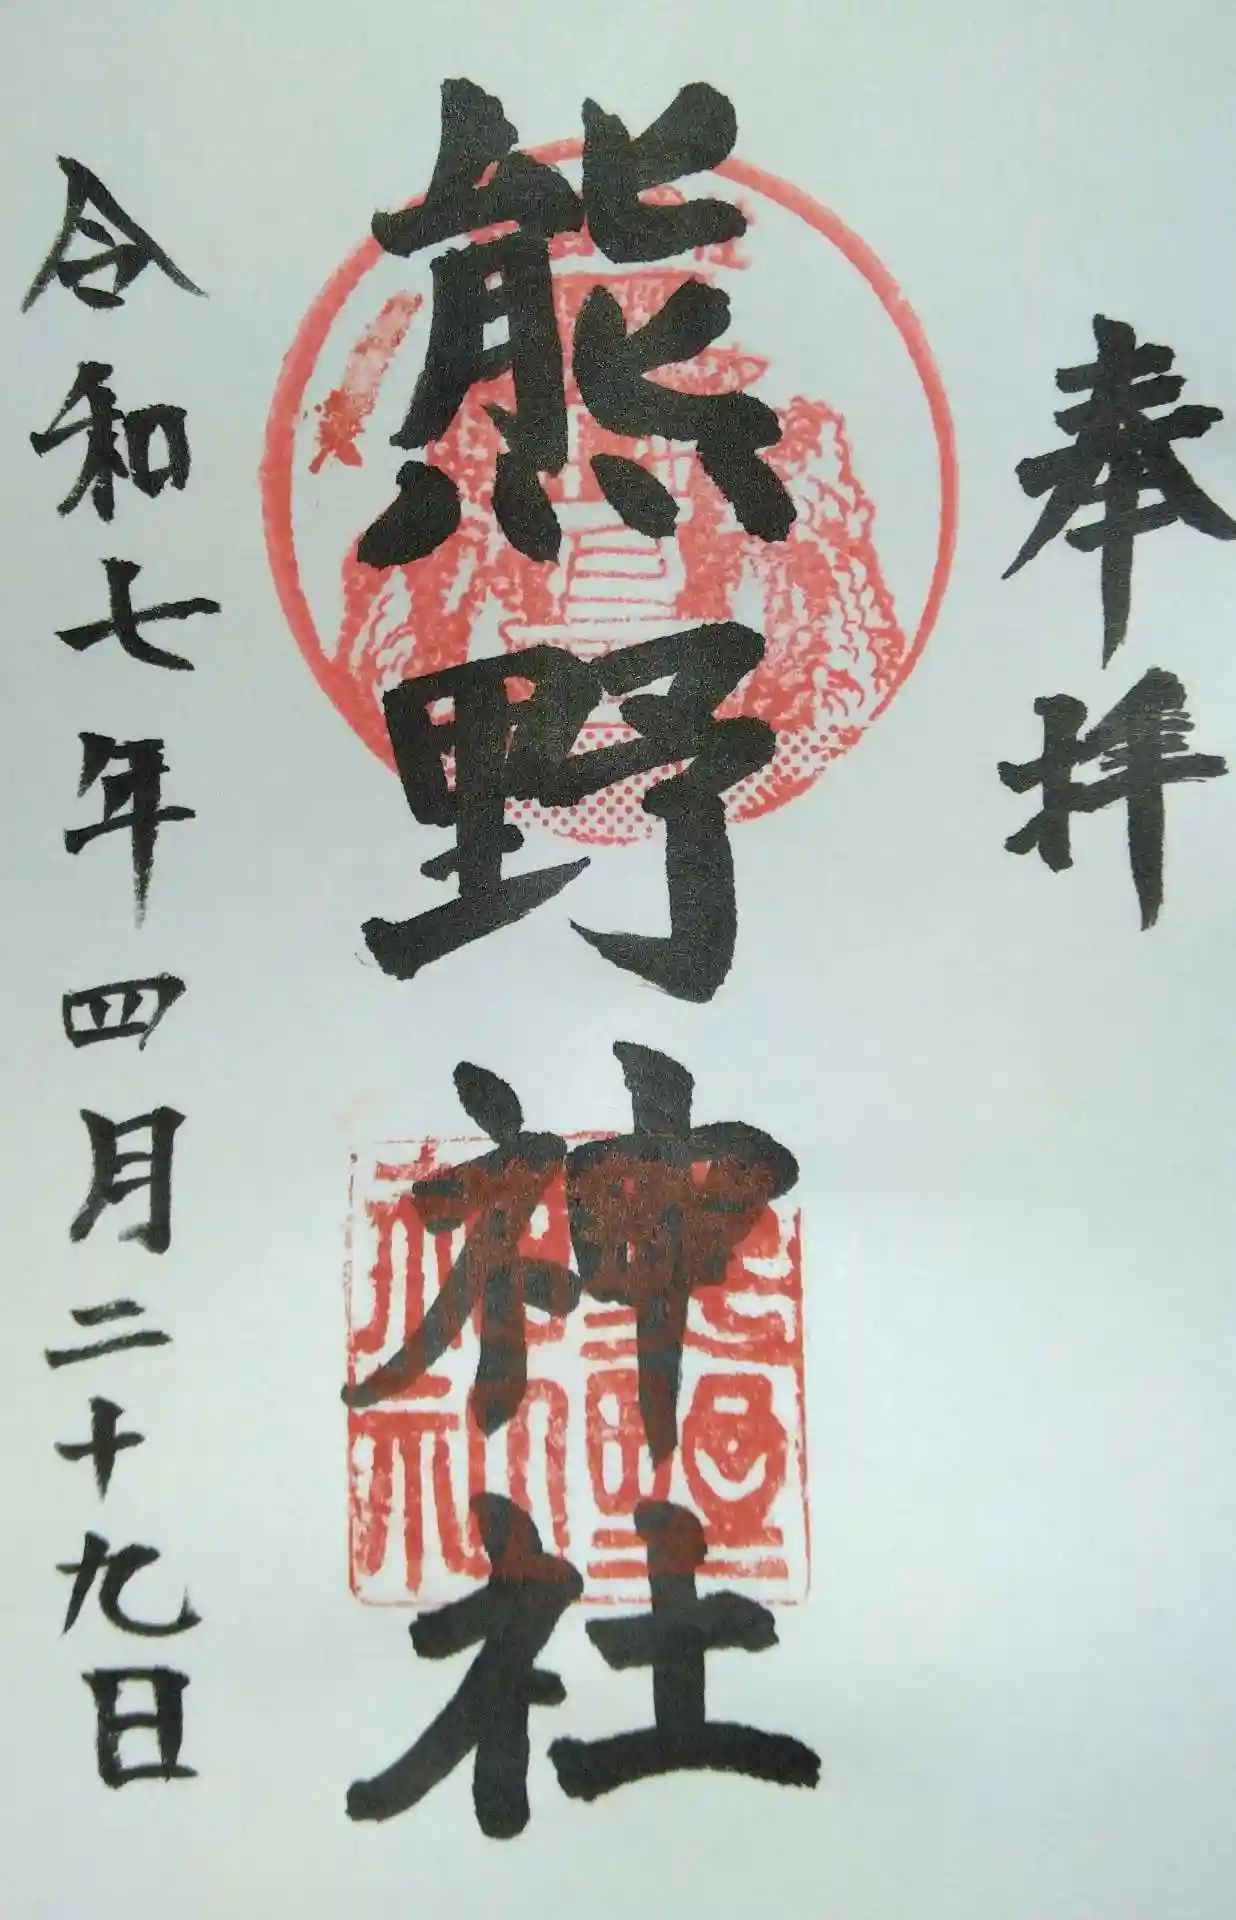 奉拝
熊野神社
令和七年四月二十九日